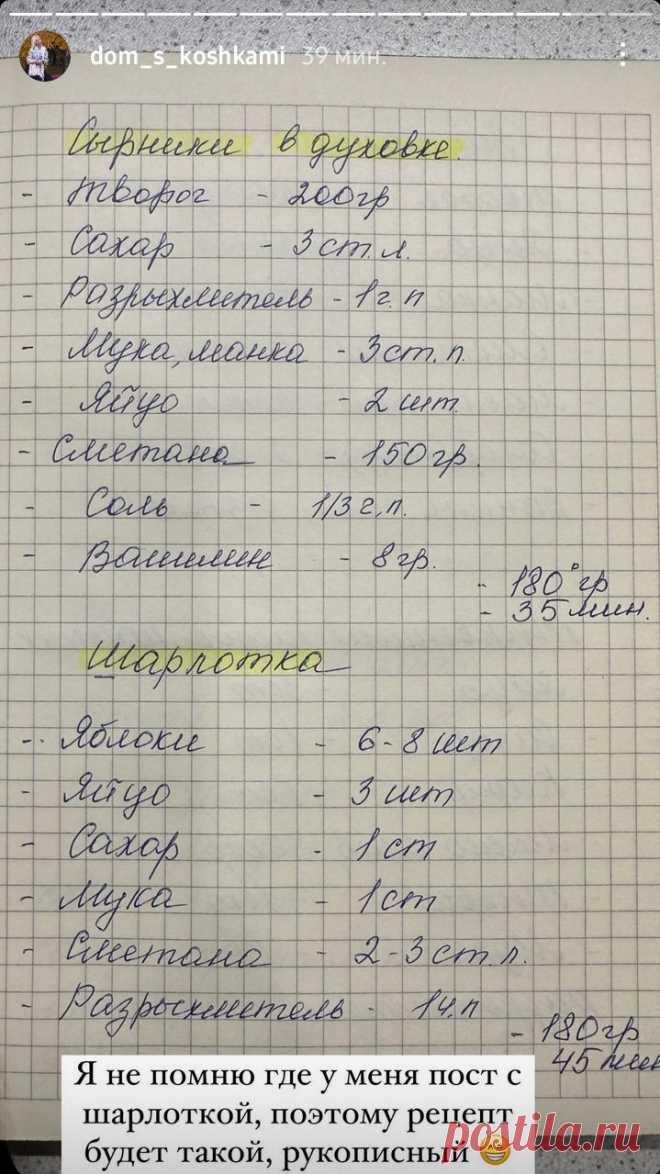 dom_s_koshkami 39 мин.
Сырники в духовке.
- Творог - 200гр
- Сахар - 3 ст. л.
- Разрыхлитель - 1 г. п
- Мука, манка - 3 ст. л.
- Яйцо - 2 шт.
- Сметана - 150гр.
- Соль - 1/3 г. л.
- Ванилин - 8 гр.
- 180° гр
- 35 мин.
Шарлотка
- Яблоки - 6-8 шт
- Яйцо - 3 шт
- Сахар - 1 ст
- Мука - 1 ст
- Сметана - 2-3 ст. л.
- Разрыхлитель - 1 ч. л
- 180гр
45 мин
Я не помню где у меня пост с
шарлоткой, поэтому рецепт
будет такой, рукописный 😁
postila.ru